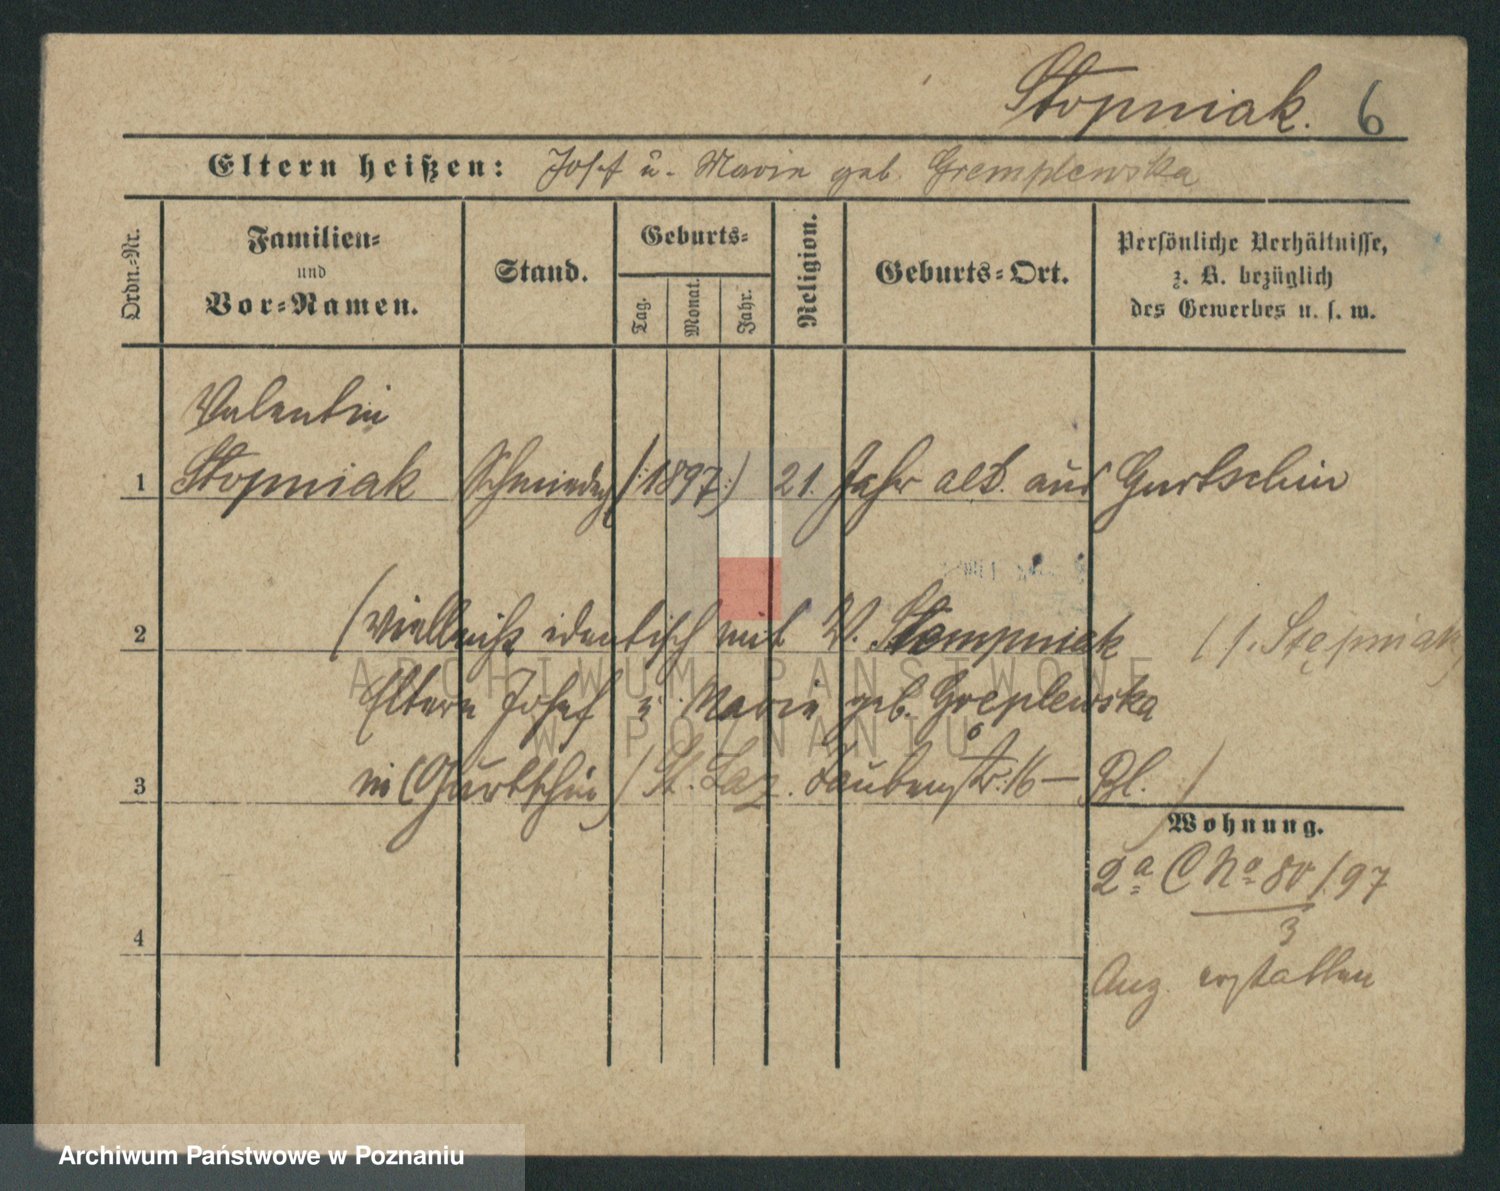 Stopniak. 6
Eltern heißen: Josef u. Marie geb. Gremplewska
Ordn.-Nr.
Familien-
und
Vor-Namen.
Stand.
Geburts-
Tag.
Monat.
Jahr.
Religion.
Geburts-Ort.
Persönliche Verhältnisse,
z. B. bezüglich
des Gewerbes u. s. w.
Valentin
1 Stopniak (:1897:) 21. Jahr alt. aus Gurtschin
2 (vielleicht identisch mit V. Stempniak (s. Stępniak)
Eltern Josef u. Marie geb. Greplewska
3 in (Gurtschin) St. Laz. Taubenstr. 16 — Bl. )
Wohnung.
2a C No 80/97
3
4
Anz. erstatten
ARCHIWUM PAŃSTWOWE
W POZNANIU
Archiwum Państwowe w Poznaniu